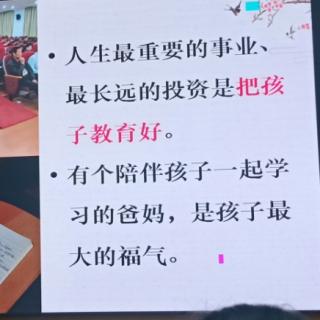 • 人生最重要的事业、
最长远的投资是把孩
子教育好。
• 有个陪伴孩子一起学
习的爸妈，是孩子最
大的福气。